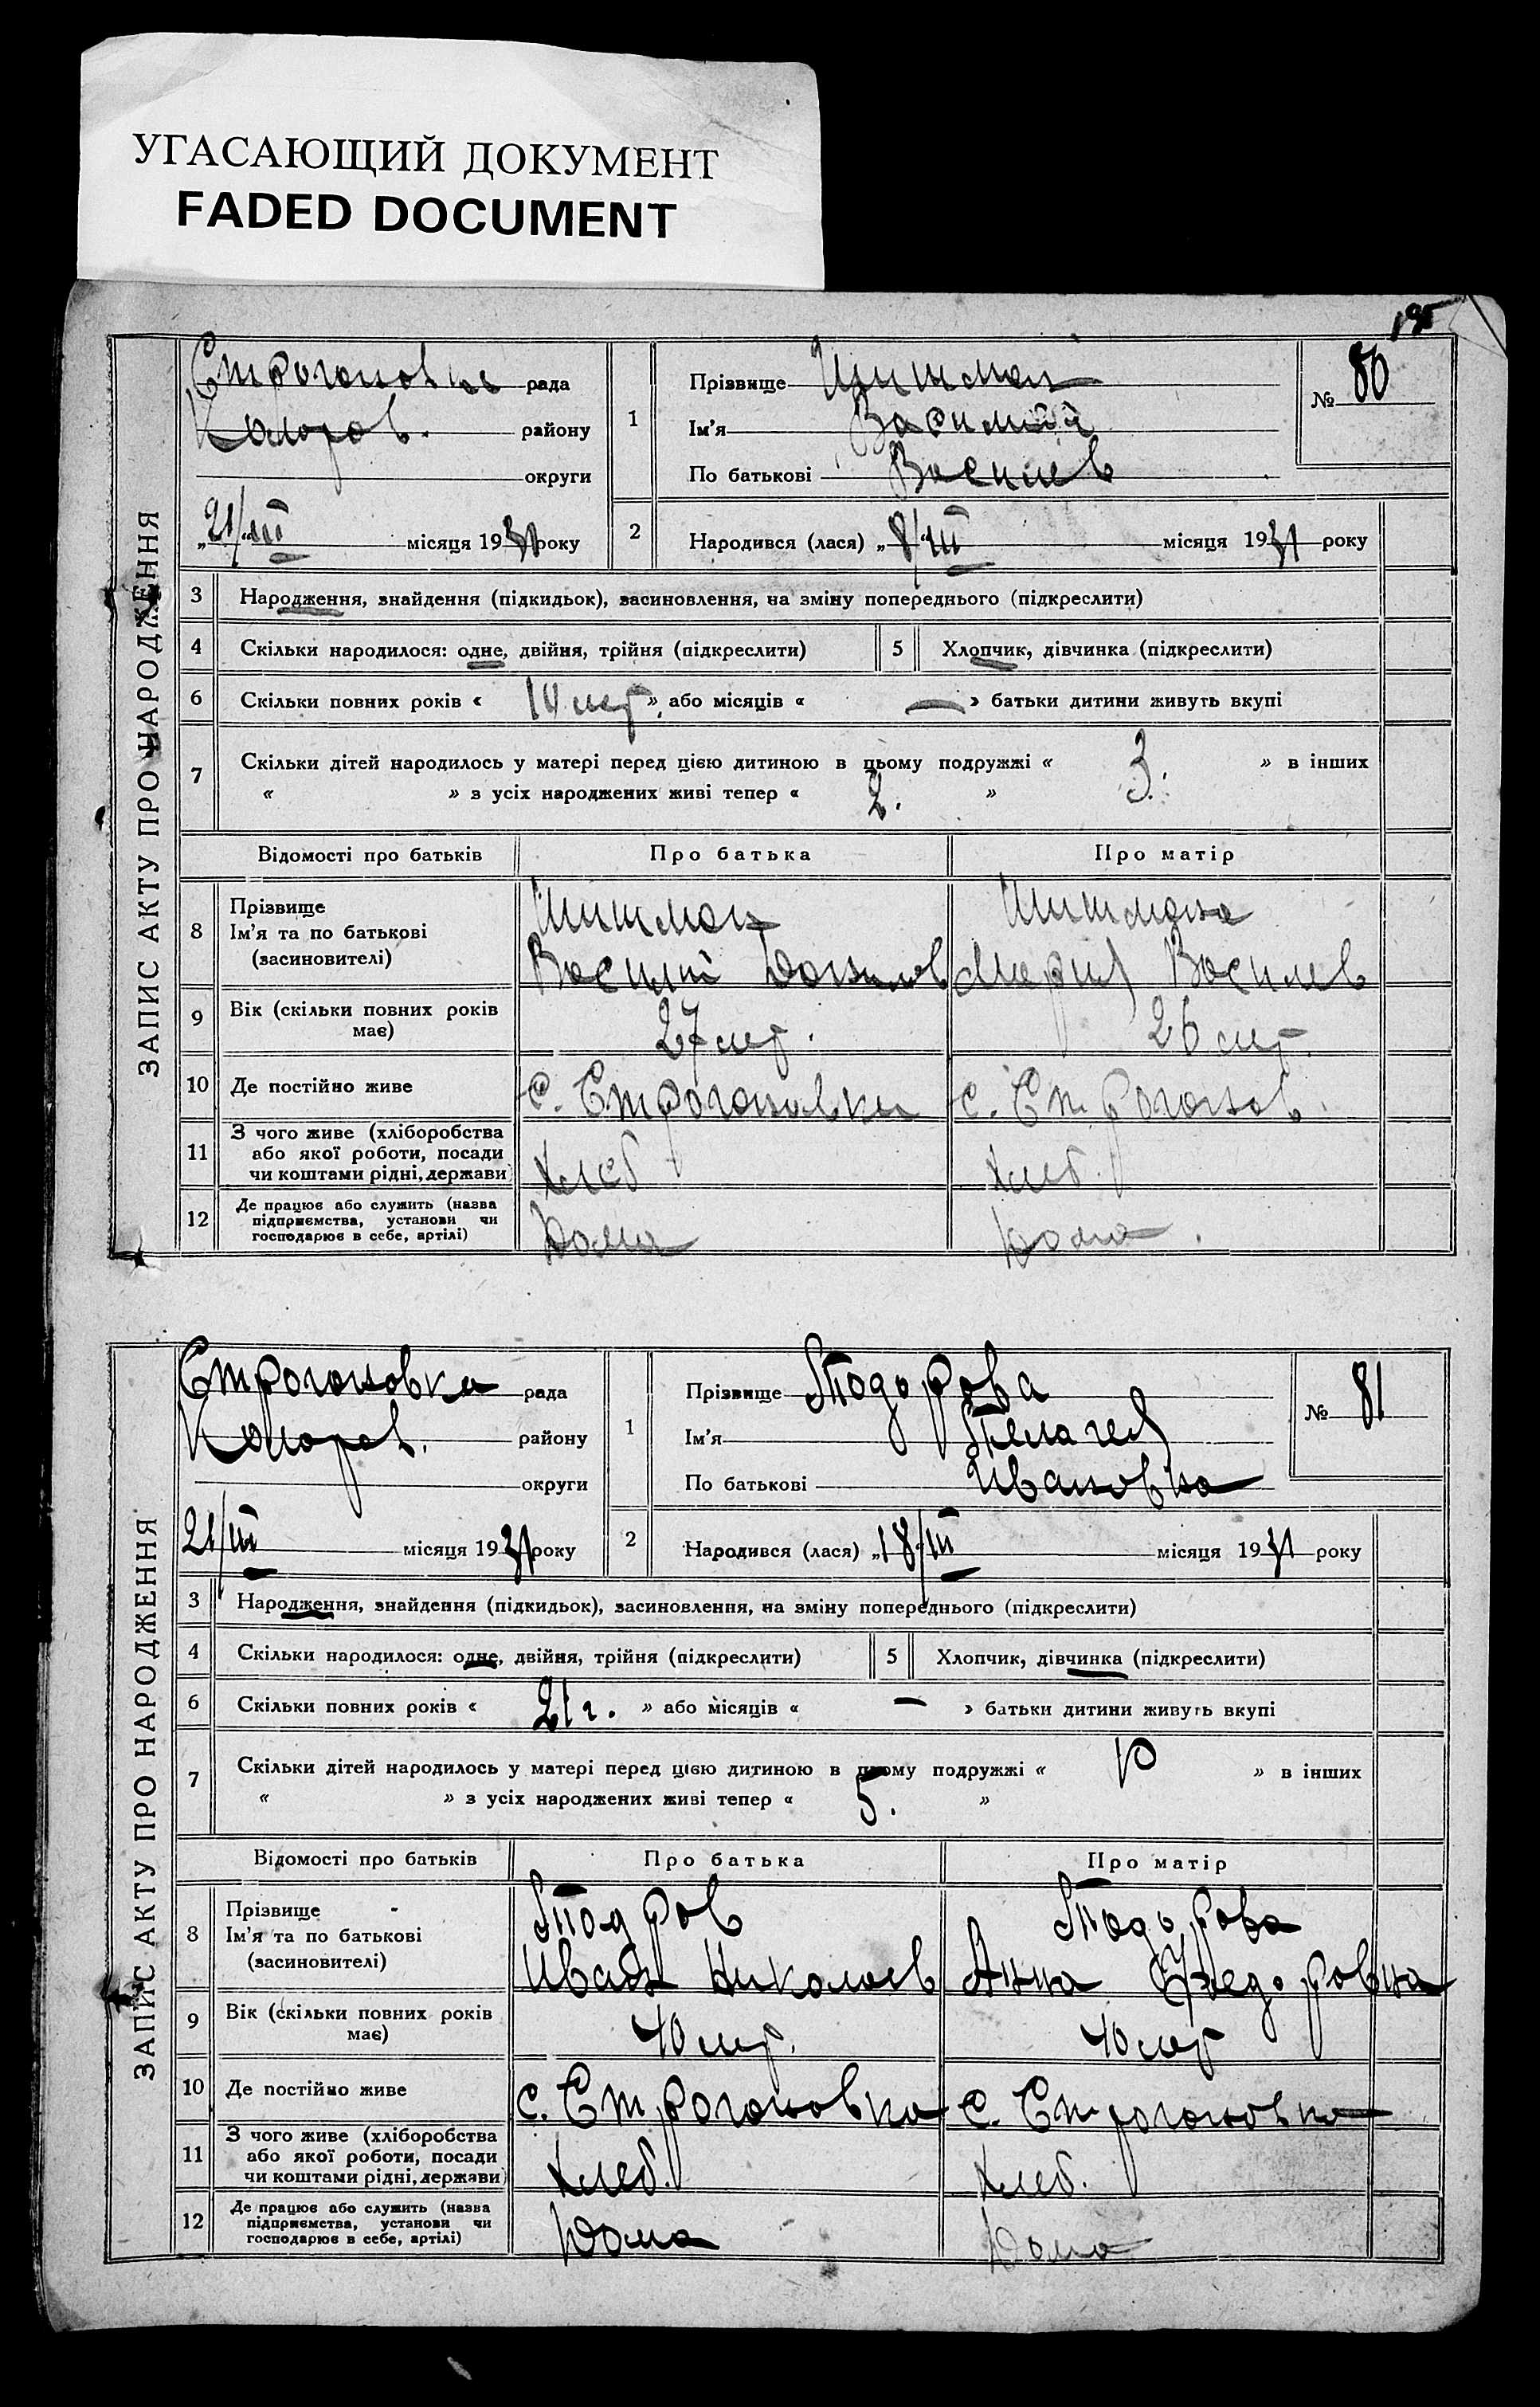 УГАСАЮЩИЙ ДОКУМЕНТ
FADED DOCUMENT
195
ЗАПИС АКТУ ПРО НАРОДЖЕННЯ
Строгоновка рада
Коларов. району
округи
„21/"III місяця 1931 року
1
Прізвище Шишман
Ім'я Василий
По батькові Васильев
№ 80
2 Народився (лася) „8/"III місяця 1931 року
3 Народження, знайдення (підкидьок), засиновлення, на зміну попереднього (підкреслити)
4 Скільки народилося: одне, двійня, трійня (підкреслити) 5 Хлопчик, дівчинка (підкреслити)
6 Скільки повних років « лет », або місяців « — » батьки дитини живуть вкупі
7 Скільки дітей народилось у матері перед цією дитиною в цьому подружжі « 3. » в інших
« » з усіх народжених живі тепер « 2. »
Відомості про батьків Про батька Про матір
8 Прізвище
Ім'я та по батькові
(засновителі)
Шишман
Василий
Шишмана
Мария Васильев
9 Вік (скільки повних років має) 27 лет. 26 лет.
10 Де постійно живе с. Строгоновки с. Строгонов.
11 З чого живе (хліборобства
або якої роботи, посади
чи коштами рідні, держави)
Хлеб Хлеб.
12 Де працює або служить (назва
підприємства, установи чи
господарює в себе, артілі)
Дома Дома.
ЗАПИС АКТУ ПРО НАРОДЖЕННЯ
Строгоновка рада
Коларов. району
округи
21/III місяця 1931 року
1
Прізвище Тодорова
Ім'я Пелагея
По батькові Ивановна
№ 81
2 Народився (лася) „18/III місяця 1931 року
3 Народження, знайдення (підкидьок), засиновлення, на зміну попереднього (підкреслити)
4 Скільки народилося: одне, двійня, трійня (підкреслити) 5 Хлопчик, дівчинка (підкреслити)
6 Скільки повних років « 21 г. » або місяців « — » батьки дитини живуть вкупі
7 Скільки дітей народилось у матері перед цією дитиною в цьому подружжі « 10 » в інших
« » з усіх народжених живі тепер « 5. »
Відомості про батьків Про батька Про матір
8 Прізвище
Ім'я та по батькові
(засиновителі)
Тодоров
Иван Николаев
Тодорова
Анна Федоровна
9 Вік (скільки повних років має) 40 лет. 40 лет
10 Де постійно живе с. Строгоновка с. Строгоновка
11 З чого живе (хліборобства
або якої роботи, посади
чи коштами рідні, держави)
Хлеб. Хлеб.
12 Де працює або служить (назва
підприємства, установи чи
господарює в себе, артілі)
Дома Дома